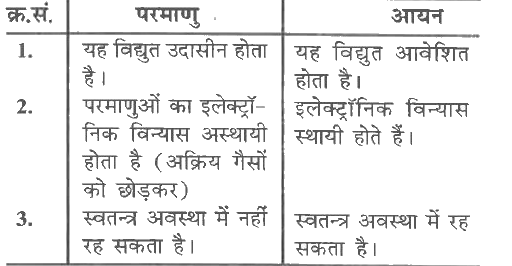 क्र.सं. परमाणु आयन
1. यह विद्युत उदासीन होता यह विद्युत आवेशित
है। होता है।
2. परमाणुओं का इलेक्ट्रॉ- इलेक्ट्रॉनिक विन्यास
निक विन्यास अस्थायी स्थायी होते हैं।
होता है (अक्रिय गैसों
को छोड़कर)
3. स्वतन्त्र अवस्था में नहीं स्वतन्त्र अवस्था में रह
रह सकता है। सकता है।